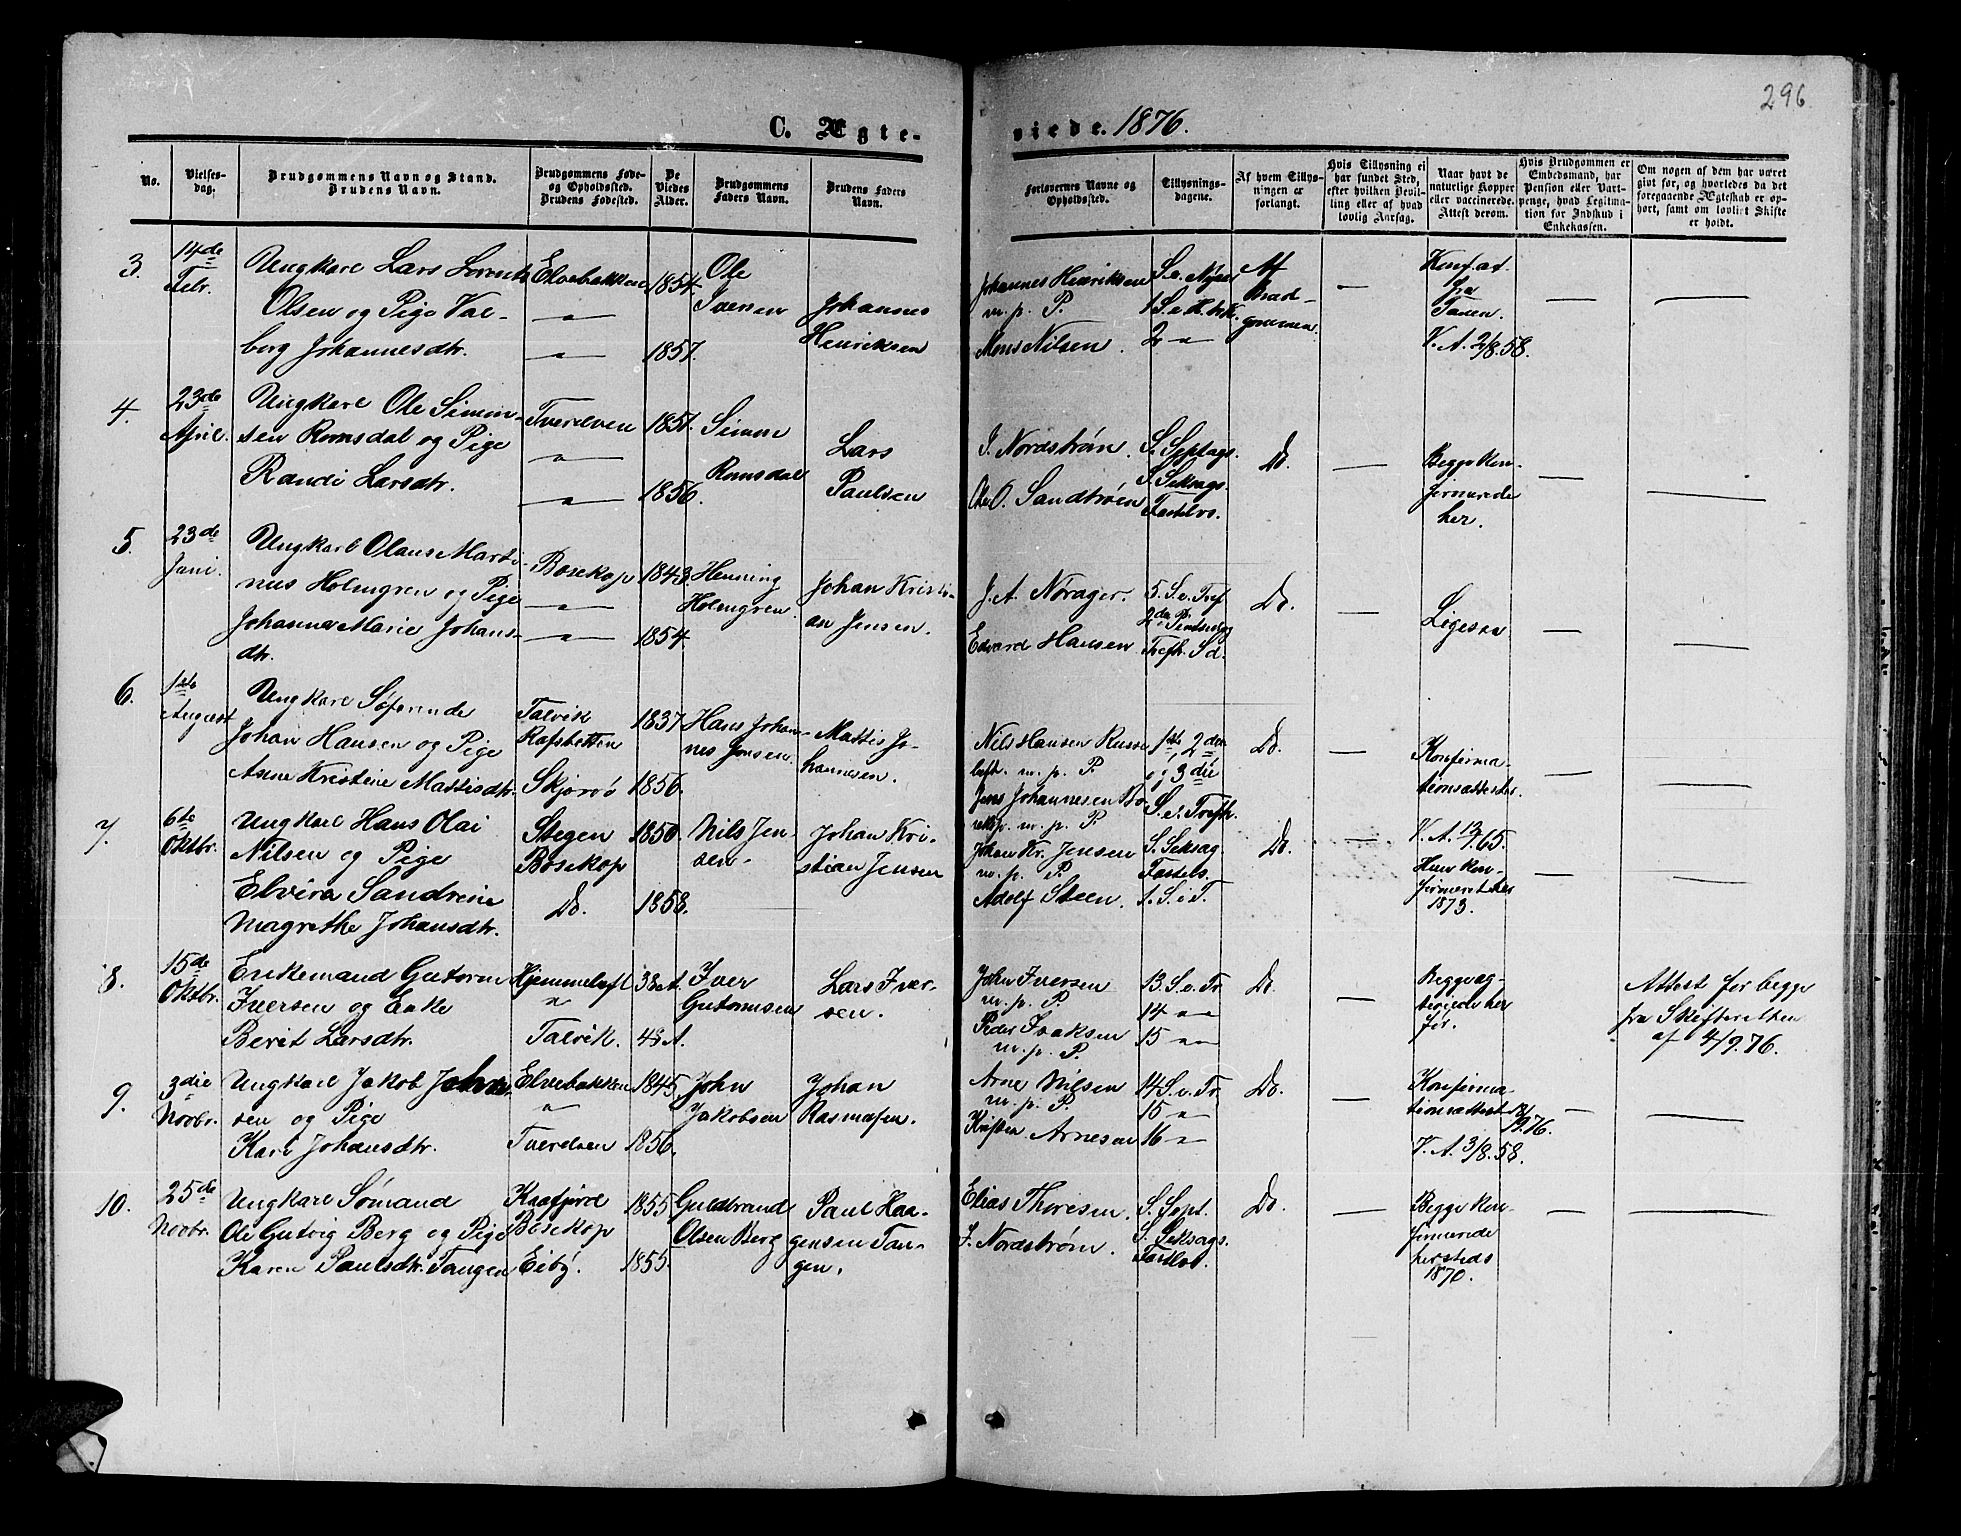 296
C. Ægte-
viede. 1876.
No.
Vielses-
dag.
Brudgommens Navn og Stand.
Brudens Navn.
Brudgommens Føde-
og Opholdssted.
Brudens Fødested.
De
Viedes
Alder.
Brudgommens
Faders Navn.
Brudens Faders
Navn.
Forlovernes Navne og
Opholdssted.
Tillysnings-
dagene.
Af hvem Tillys-
ningen er
forlangt.
Hvis Tillysning ei
har fundet Sted,
efter hvilken Bevil-
ling eller af hvad
lovlig Aarsag.
Naar havt de
naturlige Kopper
eller vaccinerede.
Attest derom.
Hvis Brudgommen er
Embedsmand, har
Pension eller Vart-
penge, hvad Legitima-
tion for Indskud i
Enkekassen.
Om nogen af dem har været
givt før, og hvorledes da det
foregaaende Ægteskab er op-
hørt, samt om lovligt Skifte
er holdt.
3.
14de
Febr.
Ungkarl Lars Lorents
Olsen og Pige Val-
borg Johannesdtr.
Elvebakken
1854.
1857.
Ole
Iversen
Johannes
Henriksen
Johannes Henriksen
m. p. P.
Mons Nilsen.
S. e. Nyaar
1 S. e. H. 3 K.
2 —"—
Af
Brud-
gommen.
Konf. at.
fra
Tanen.
V. A. 2/8. 58.
4.
23de
April.
Ungkarl Ole Simon-
sen Romsdal og Pige
Randi Larsdtr.
Tverelven
1851.
1856.
Simon
Romsdal
Lars
Paulsen
I. Nordstrøm.
Ole O. Sandstrøm
S. Septags.
S. Seksags.
Fastelvs.
Do.
Begge kon-
firmerede
her.
5.
23de
Juni.
Ungkarl Olaus Marti-
nus Holmgren og Pige
Johanna Marie Johans-
dtr.
Bosekop
1843.
1854.
Henning
Holmgren.
Johan Kristi-
an Jensen.
J. A. Nørager.
Edvard Hansen
5. S. e. Tref
2den Pintsedag
Trefh. Sd.
Do.
Ligesaa
6.
1ste
August
Ungkarl Søfarende
Johan Hansen og Pige
Anne Kristine Mattisdtr.
Talvik
Rafsbotten
Skjørvø
1837
1856.
Hans Johan-
nes Jensen.
Mattis Jo-
hannesen.
Nils Hansen Russe
luft. m. p. P.
Jens Johannesen Bo
sekop. m. p. P.
1ste, 2den
og 3die
S. e. Trefh.
Do.
Konfirma-
tionsattester.
7.
6te
Oktbr.
Ungkarl Hans Olai
Nilsen og Pige
Elvira Sandrine
Magrethe Johansdtr.
Stegen
Bosekop
Do.
1850.
1858.
Nils Jen-
sen
Johan Kri-
stian Jensen
Johan Kr. Jensen
m. p. P.
Adolf Steen.
S. Seksag.
Fastels.
1. S. i F.
Do.
V. A. 12/7 65.
Hun kon-
firmeret her
1873.
8.
15de
Oktbr.
Enkemand Gutorm
Iversen og Enke
Berit Larsdtr.
Hjemmeluft
"
Talvik.
38 A.
48 A.
Iver
Gutormsen
Lars Iver-
sen.
John Iversen
m. p. P.
Peder Isaksen
m. p. P.
13. S. e. Tr.
14 —"—
15 —"—
Do.
Begge vag-
sinerede her
før.
Attest for begge
fra Skifteretten
af 4/9. 76.
9.
3die
Novbr.
Ungkarl Jakob Johan-
sen og Pige
Kari Johansdtr.
Elvebakken
"
Tverelven
1845
1856.
John
Jakobsen
Johan
Rasmusen.
Arne Nilsen
m. p. P.
Kristen Arnesen
14 S. e. Tr.
15 —"—
16 —"—
Do.
Konfirma-
tionsattest 18/9. 76.
V. A. 3/8. 58.
10.
25de
Novbr.
Ungkarl Sømand
Ole Gutvig Berg og Pige
Karen Paulsdtr. Tangen
Kaafjord
Bosekop
Eiby.
1855
1855.
Guldbrand
Olsen Berg
Paul Haa-
gensen Tan-
gen.
Elias Thoresen.
I. Nordstrøm.
S. Sept.
S. Seksags.
Fastlvs.
Do.
Begge kon-
firmerede
hersteds
1870.